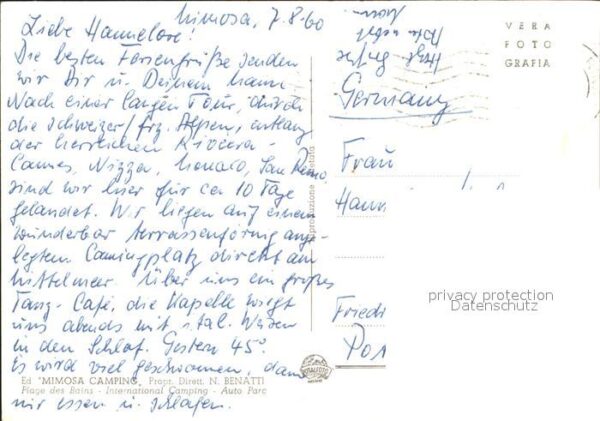 Mimosa, 7.8.60
Liebe Hannelore!
Die besten Feriengrüße senden
wir Dir u. Deinem Mann.
Nach einer langen Tour, durch
die schweizer/frz. Alpen, entlang
der herrlichen Riviera-
Cannes, Nizza, Monaco, San Remo,
sind wir hier für ca 10 Tage
gelandet. Wir liegen auf einem
wunderbar terrassenförmig ange-
legtem Campingplatz direkt am
Mittelmeer. Über uns ein großes
Tanz-Café, die Kapelle wiegt
uns abends mit ital. Weisen
in den Schlaf. Gestern 45°.
Es wird viel geschwommen, dann
nur essen u. schlafen.
Ed. "MIMOSA CAMPING" Propr. Dirett. N. BENATTI
Plage des Bains - International Camping - Auto Parc
Riproduzione vietata
VERA
FOTO
GRAFIA
Herzl. Grüße
Germany
Frau
Hann
Friedr
Pos
privacy protection
Datenschutz